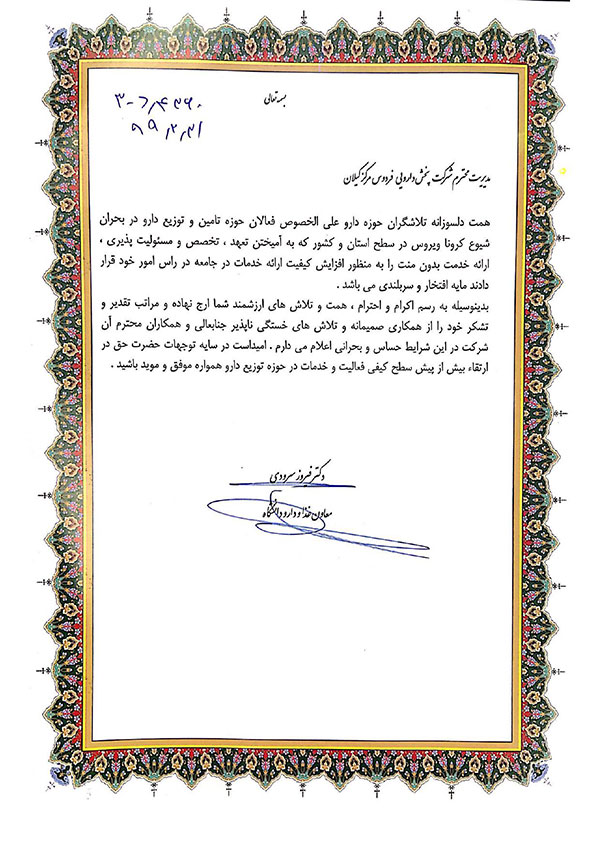 بسمه تعالی
۹۹٫۲٫۳۱
مدیریت محترم شرکت پخش دارویی فردوس مرکز گیلان
همت دلسوزانه تلاشگران حوزه دارو علی الخصوص فعالان حوزه تامین و توزیع دارو در بحران
شیوع کرونا ویروس در سطح استان و کشور که به آمیختن تعهد ، تخصص و مسئولیت پذیری ،
ارائه خدمت بدون منت را به منظور افزایش کیفیت ارائه خدمات در جامعه در راس امور خود قرار
دادند مایه افتخار و سربلندی می باشد .
بدینوسیله به رسم اکرام و احترام ، همت و تلاش های ارزشمند شما ارج نهاده و مراتب تقدیر و
تشکر خود را از همکاری صمیمانه و تلاش های خستگی ناپذیر جنابعالی و همکاران محترم آن
شرکت در این شرایط حساس و بحرانی اعلام می دارم . امیداست در سایه توجهات حضرت حق در
ارتقاء بیش از پیش سطح کیفی فعالیت و خدمات در حوزه توزیع دارو همواره موفق و موید باشید .
دکتر فیروز سرودی
معاون غذا و دارو دانشگاه